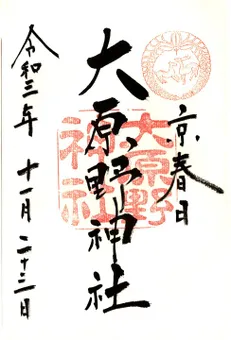 京春日
大原野神社
大原野
神社
令和三年 十一月二十三日